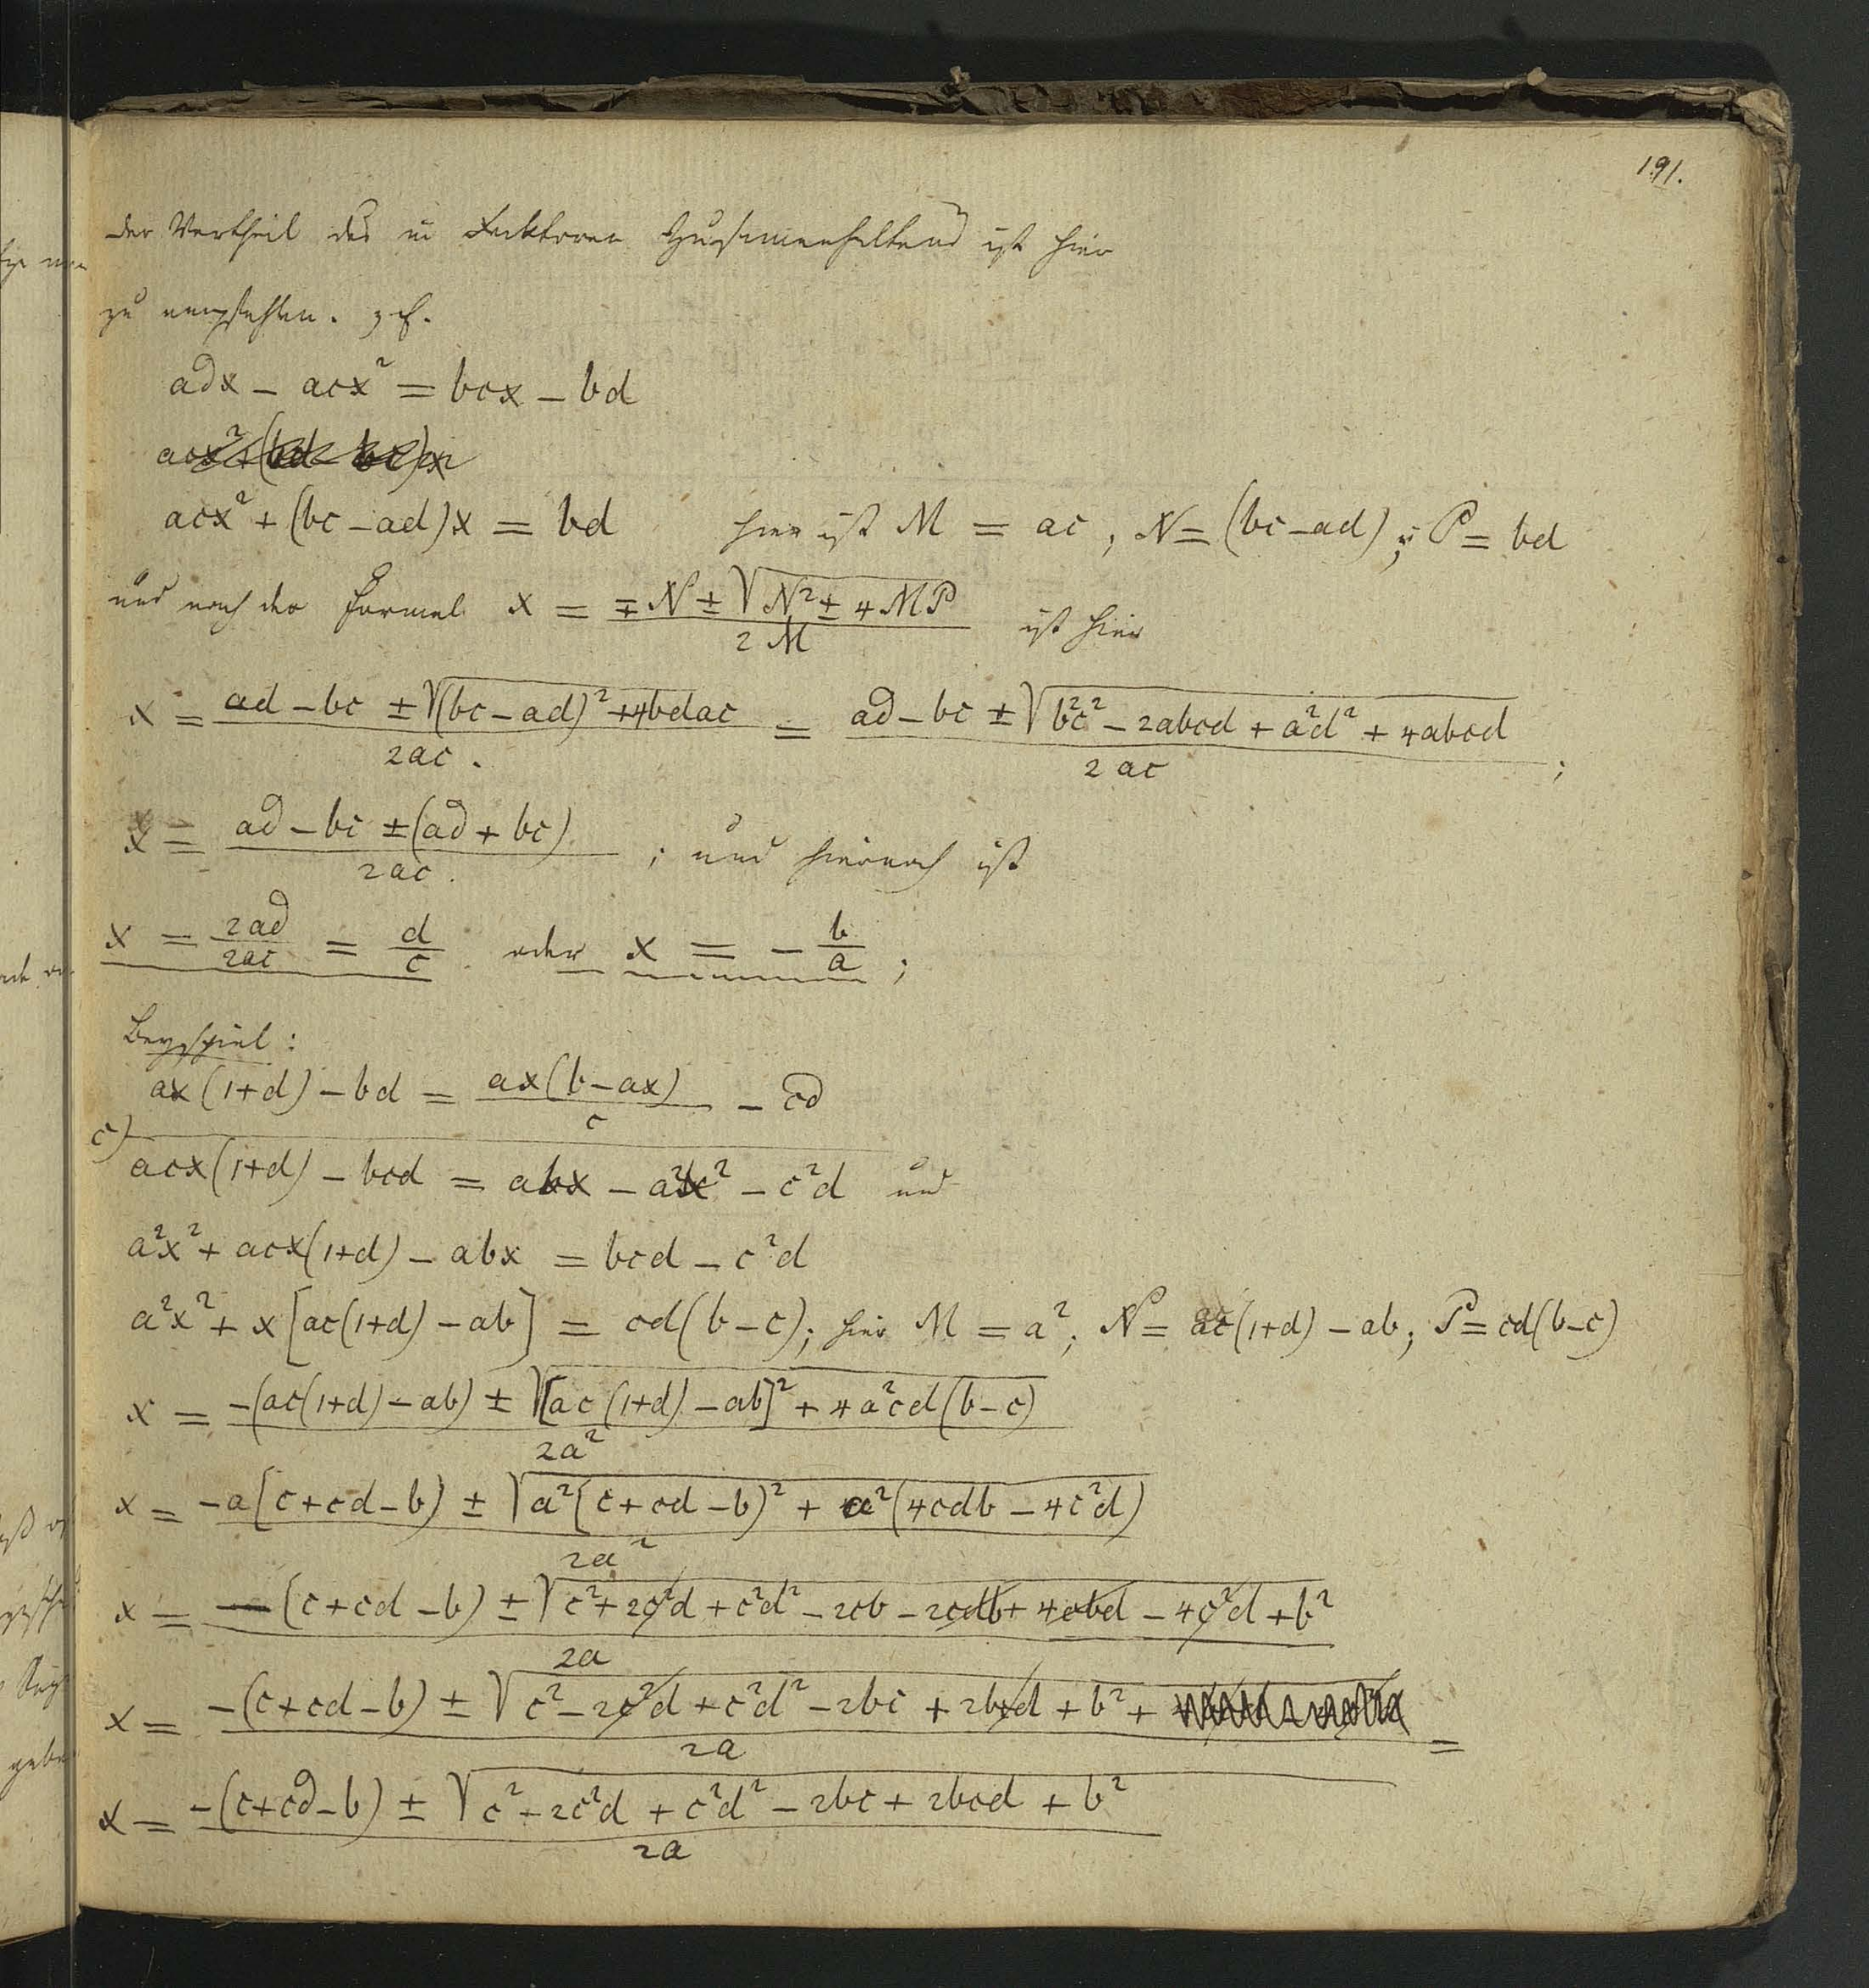 191.
der Vortheil des in Faktoren Zusammenhaltens ist hier
zu empfehlen. z. E.
adx − acx² = bcx − bd
acx² + (bd − bc)x
acx² + (bc − ad)x = bd hier ist M = ac, N = (bc − ad); P = bd
und nach der Formel x = (∓N ± √(N² ± 4MP)) / 2M ist hier
x = (ad − bc ± √((bc − ad)² + 4bdac)) / 2ac. = (ad − bc ± √(b²c² − 2abcd + a²d² + 4abcd)) / 2ac;
x = (ad − bc ± (ad + bc)) / 2ac.; und hiernach ist
x = 2ad/2ac = d/c oder x = − b/a;
Beyspiel:
ax(1+d) − bd = ax(b − ax)/c − cd
c)
acx(1+d) − bcd = abx − a²x² − c²d und
a²x² + acx(1+d) − abx = bcd − c²d
a²x² + x[ac(1+d) − ab] = cd(b − c); hier M = a²; N = ac(1+d) − ab; P = cd(b − c)
x = (−(ac(1+d) − ab) ± √([ac(1+d) − ab]² + 4a²cd(b − c))) / 2a²
x = (−a(c + cd − b) ± √(a²(c + cd − b)² + a²(4cdb − 4c²d))) / 2a²
x = (−(c + cd − b) ± √(c² + 2c²d + c²d² − 2cb − 2cdb + 4cbd − 4c²d + b²)) / 2a
x = (−(c + cd − b) ± √(c² − 2c²d + c²d² − 2bc + 2bcd + b² +)) / 2a =
x = (−(c + cd − b) ± √(c² − 2c²d + c²d² − 2bc + 2bcd + b²)) / 2a